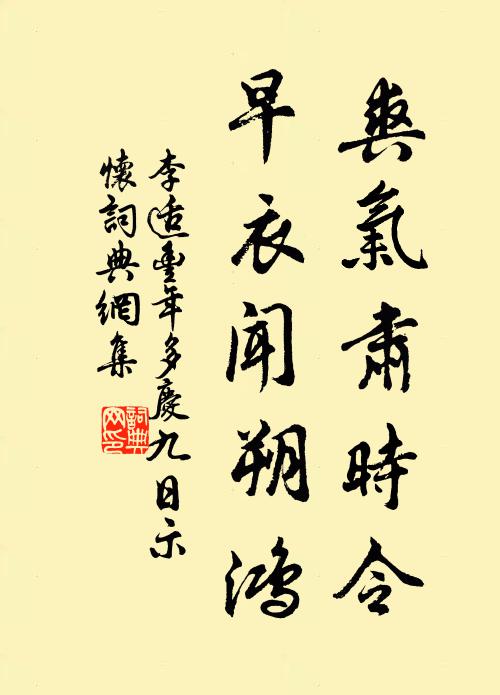 爽氣肅時令
早衣聞朔鴻
李适豐年多慶九日示
懷詞典網集
詞典网印